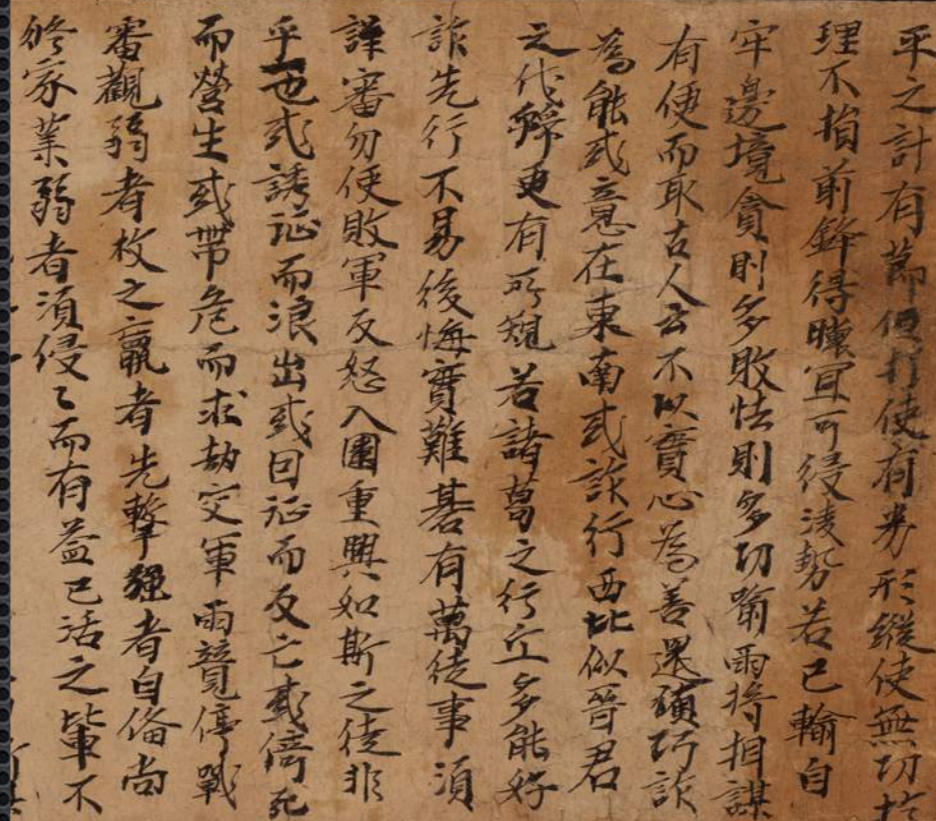 平之計有節但打使有劵形縱使無功於
理不損前鋒得䁱冝可侵淩勢若已輸自
牢邊境貪則多敗怯則多功喻兩將相謀
有便而取古人云不以實心為善還須巧詐
為能或意在東南或詐行西北似晉君
之伐𭁈更有所規若諸葛之行丘多能好
詐先行不易後悔實難碁有萬徒事須
謹審勿使敗軍反怒入圍重興如斯之徒非
乎也或誘征而浪出或因征而反亡或倚死
而營生或帶危而求劫交軍兩競停戰
審觀弱者枚之羸者先擊強者自俻尚
修家業弱者須侵〻而有益已活之軰不